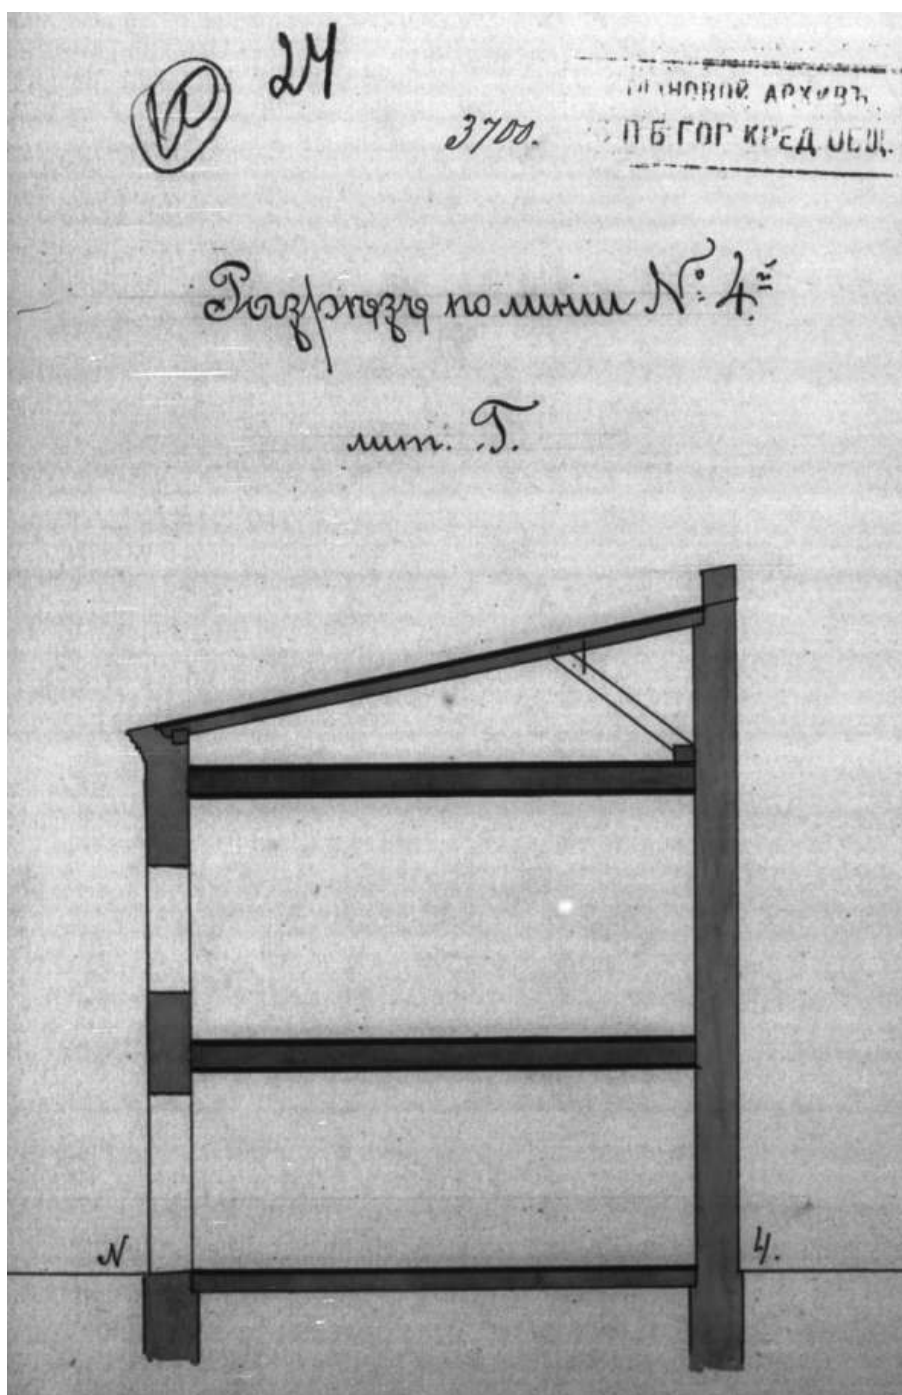 24
3700.
АРХИВЪ
ПБ ГОР КРЕД ОБЩ.
Разрѣзъ по линіи № 4й
лит. Г.
N
4.